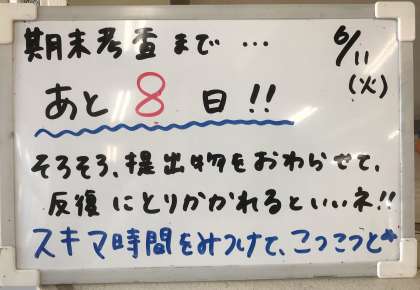 期末考査まで… 6/11
(火)
あと8日!!
そろそろ、提出物をおわらせて、
反復にとりかかれるといいネ!!
スキマ時間をみつけて、こつこつと*